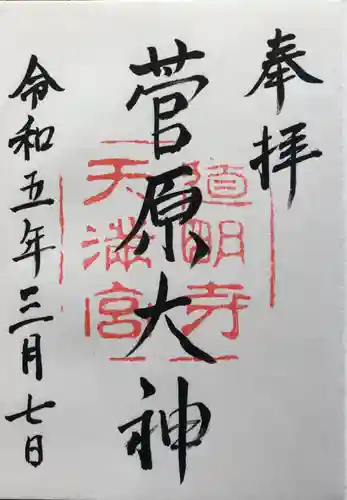 奉拝
道明寺
天満宮
菅原大神
令和五年三月七日